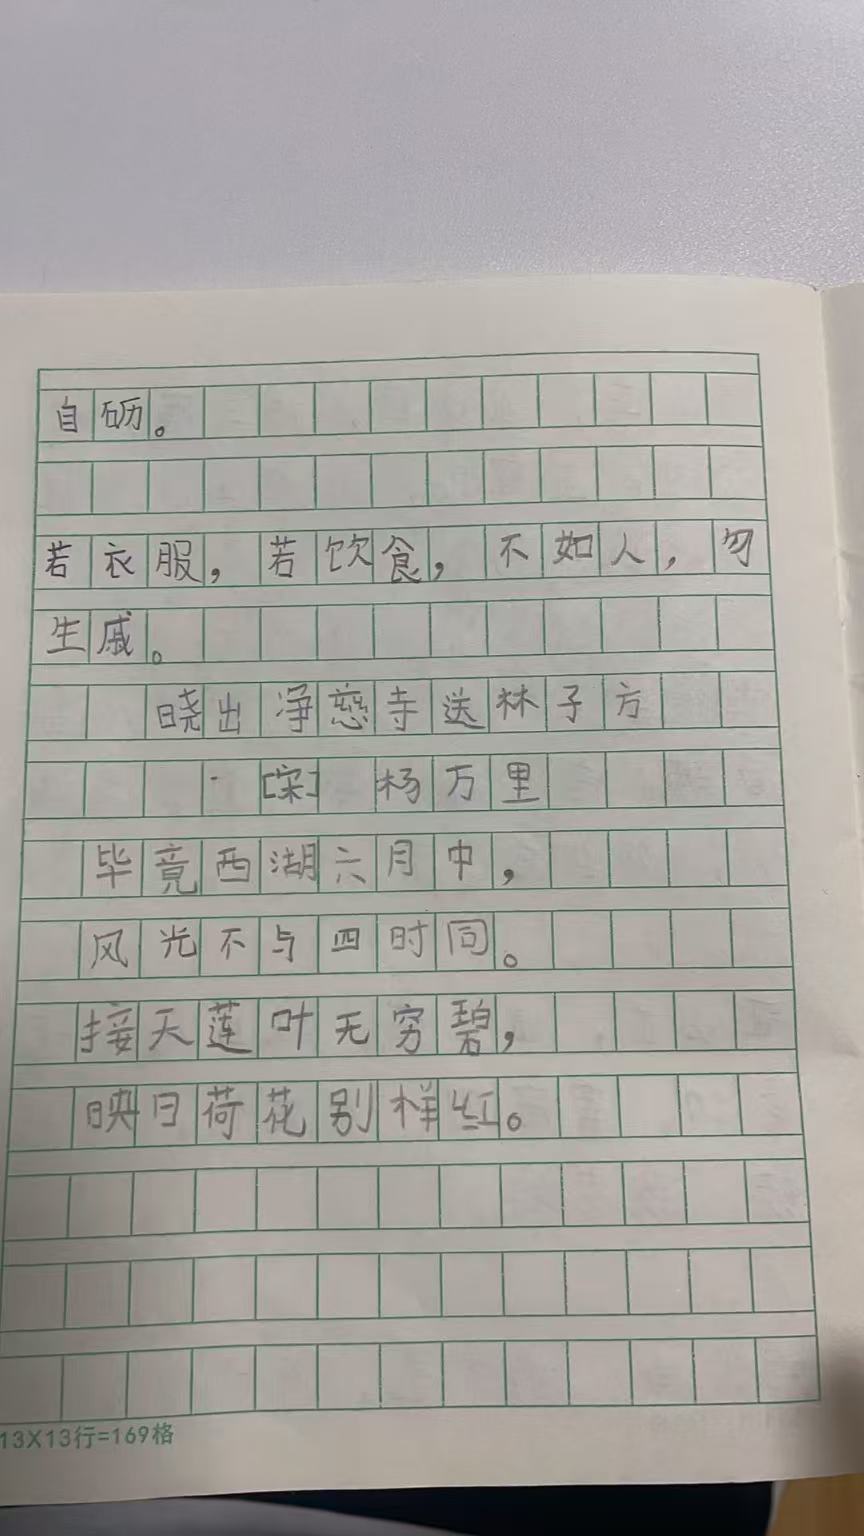 自砺。
若衣服，若饮食，不如人，勿
生戚。
晓出净慈寺送林子方
[宋] 杨万里
毕竟西湖六月中，
风光不与四时同。
接天莲叶无穷碧，
映日荷花别样红。
13X13行=169格